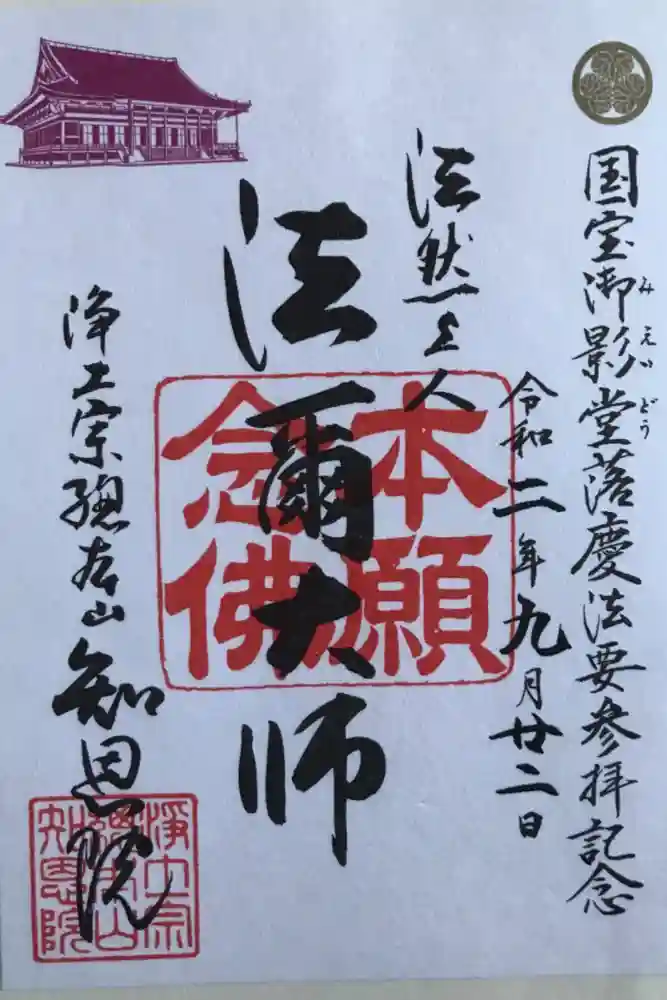 国宝御影堂落慶法要参拝記念
みえいどう
令和二年九月廿二日
法然上人
法爾大師
本願
念佛
浄土宗總本山知恩院
浄土宗
總本山
知恩院